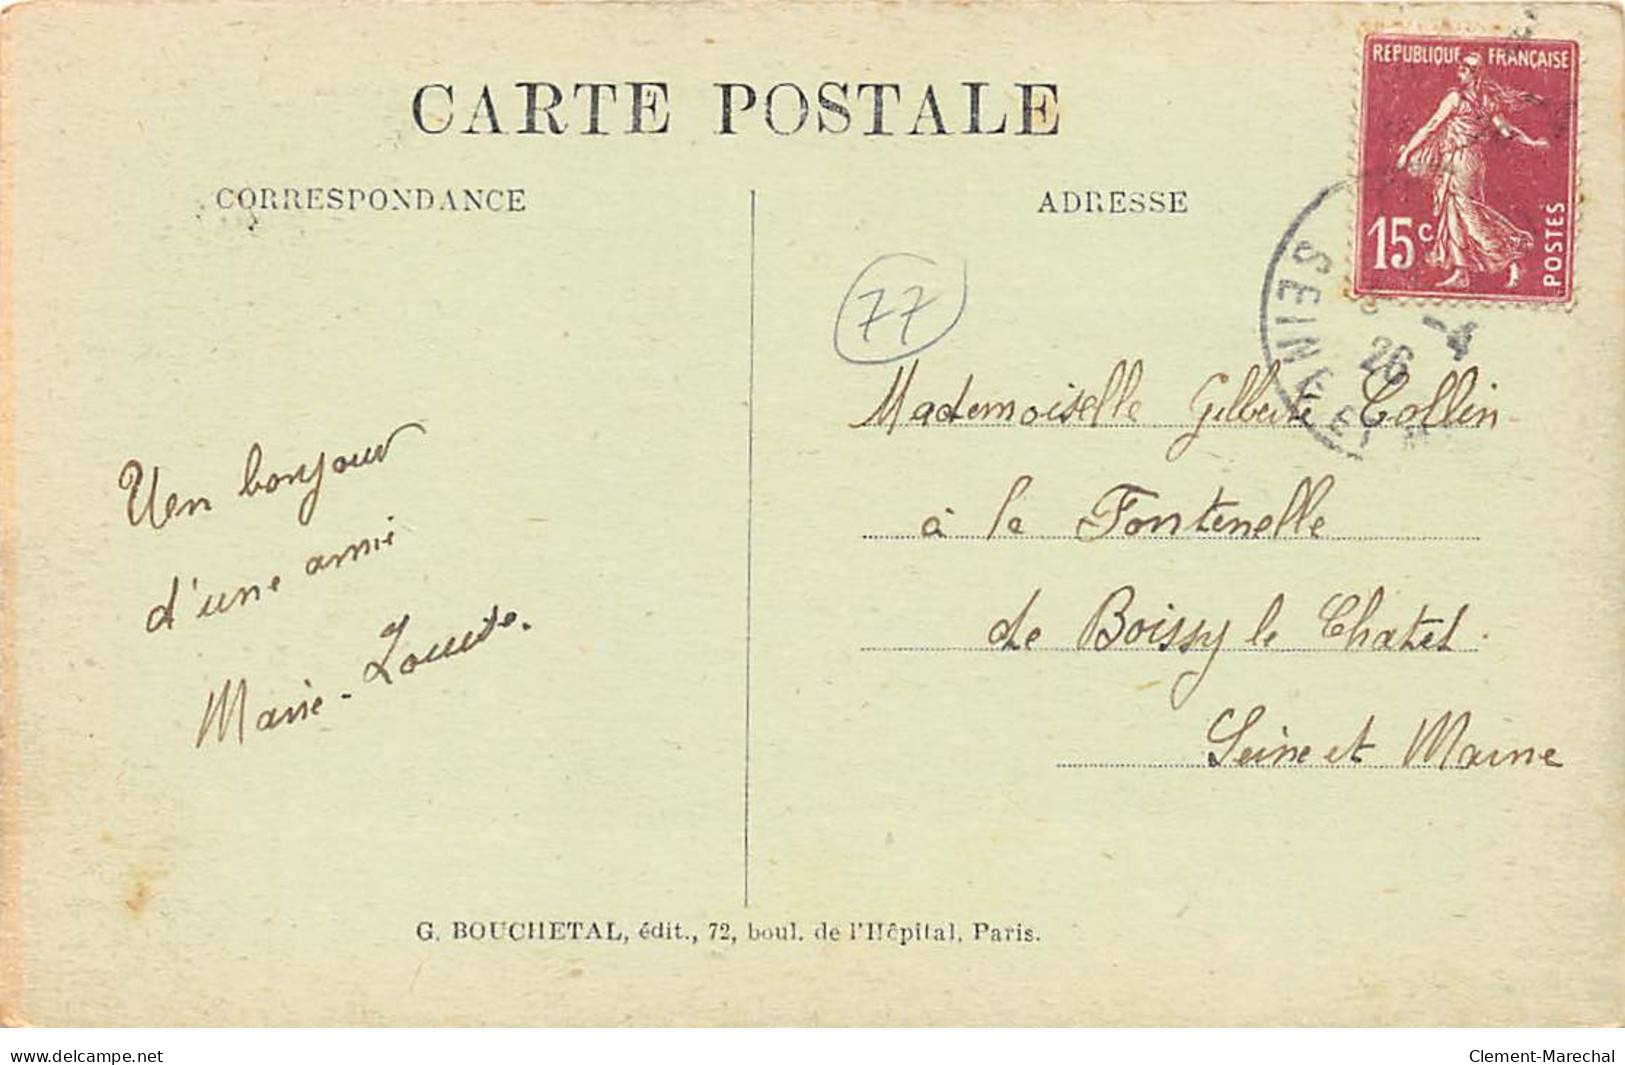 CARTE POSTALE
CORRESPONDANCE
ADRESSE
REPUBLIQUE FRANÇAISE
15c
POSTES
SEINE ET
26
77
Un bonjour
d'une amie
Marie-Louise.
Mademoiselle Gilberte Collin
à la Fontenelle
de Boissy le Chatel
Seine et Marne
G. BOUCHETAL, édit., 72, boul. de l'Hôpital, Paris.
www.delcampe.net
Clement-Marechal